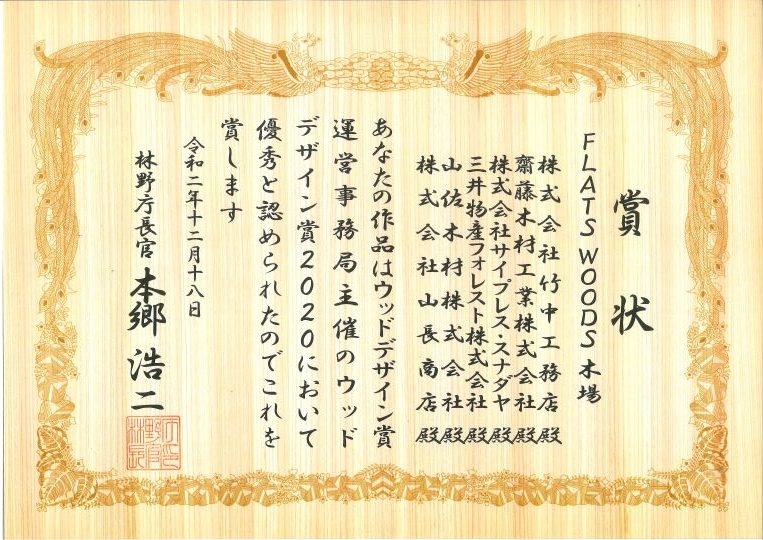 賞状
FLATS WOODS 木場
株式会社竹中工務店 殿
齋藤木材工業株式会社 殿
株式会社サイプレス・スナダヤ 殿
三井物産フォレスト株式会社 殿
山佐木材株式会社 殿
株式会社山長商店 殿
あなたの作品はウッドデザイン賞
運営事務局主催のウッド
デザイン賞2020において
優秀と認められたのでこれを
賞します
令和二年十二月十八日
林野庁長官 本郷浩二